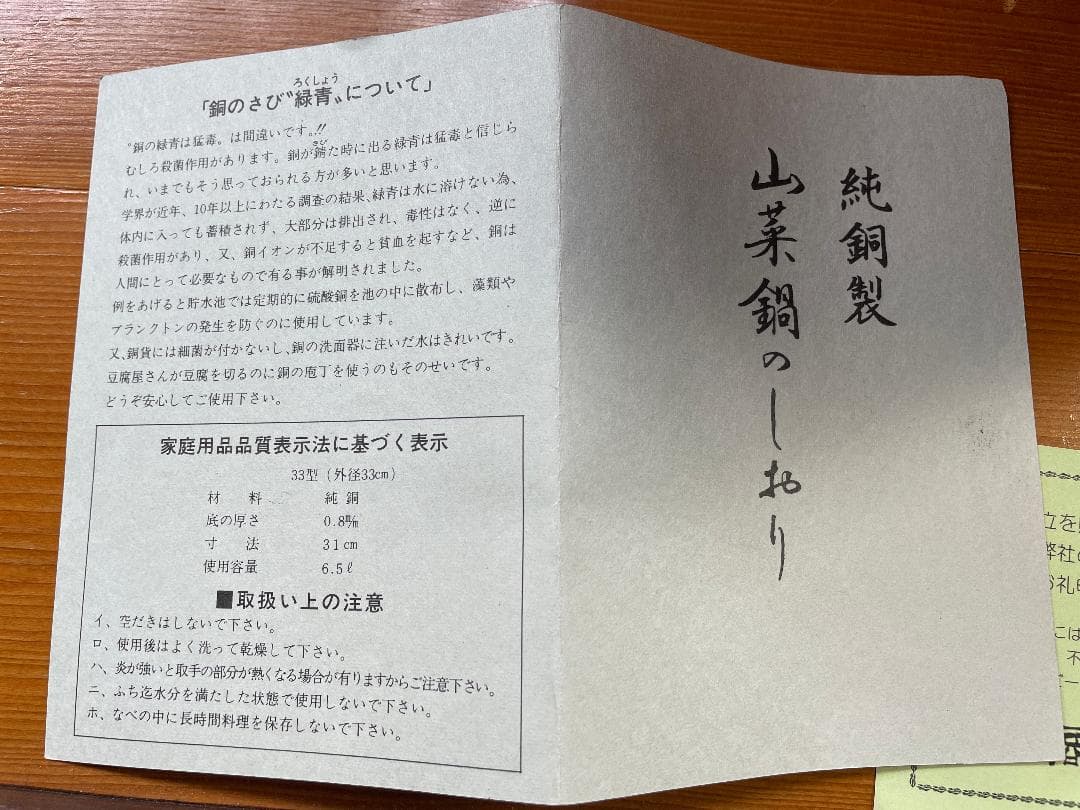 純銅製
山菜鍋のしおり
「銅のさび〝緑青〟について」
ろくしょう
〝銅の緑青は猛毒〟は間違いです。!!
むしろ殺菌作用があります。銅が錆た時に出る緑青は猛毒と信じら
さび
れ、いまでもそう思っておられる方が多いと思います。
学界が近年、10年以上にわたる調査の結果、緑青は水に溶けない為、
体内に入っても蓄積されず、大部分は排出され、毒性はなく、逆に
殺菌作用があり、又、銅イオンが不足すると貧血を起すなど、銅は
人間にとって必要なもので有る事が解明されました。
例をあげると貯水池では定期的に硫酸銅を池の中に散布し、藻類や
プランクトンの発生を防ぐのに使用しています。
又、銅貨には細菌が付かないし、銅の洗面器に注いだ水はきれいです。
豆腐屋さんが豆腐を切るのに銅の庖丁を使うのもそのせいです。
どうぞ安心してご使用下さい。
家庭用品品質表示法に基づく表示
33型(外径33cm)
材 料 純銅
底の厚さ 0.8㎜
寸 法 31cm
使用容量 6.5ℓ
■取扱い上の注意
イ、空だきはしないで下さい。
ロ、使用後はよく洗って乾燥して下さい。
ハ、炎が強いと取手の部分が熱くなる場合が有りますからご注意下さい。
ニ、ふち迄水分を満たした状態で使用しないで下さい。
ホ、なべの中に長時間料理を保存しないで下さい。
立を
弊社
お礼
には
不